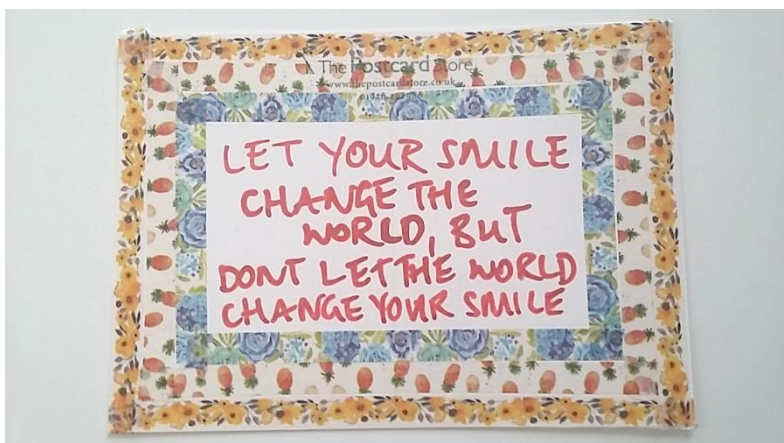 The Postcard Store
www.thepostcardstore.co.uk
LET YOUR SMILE
CHANGE THE
WORLD, BUT
DONT LET THE WORLD
CHANGE YOUR SMILE